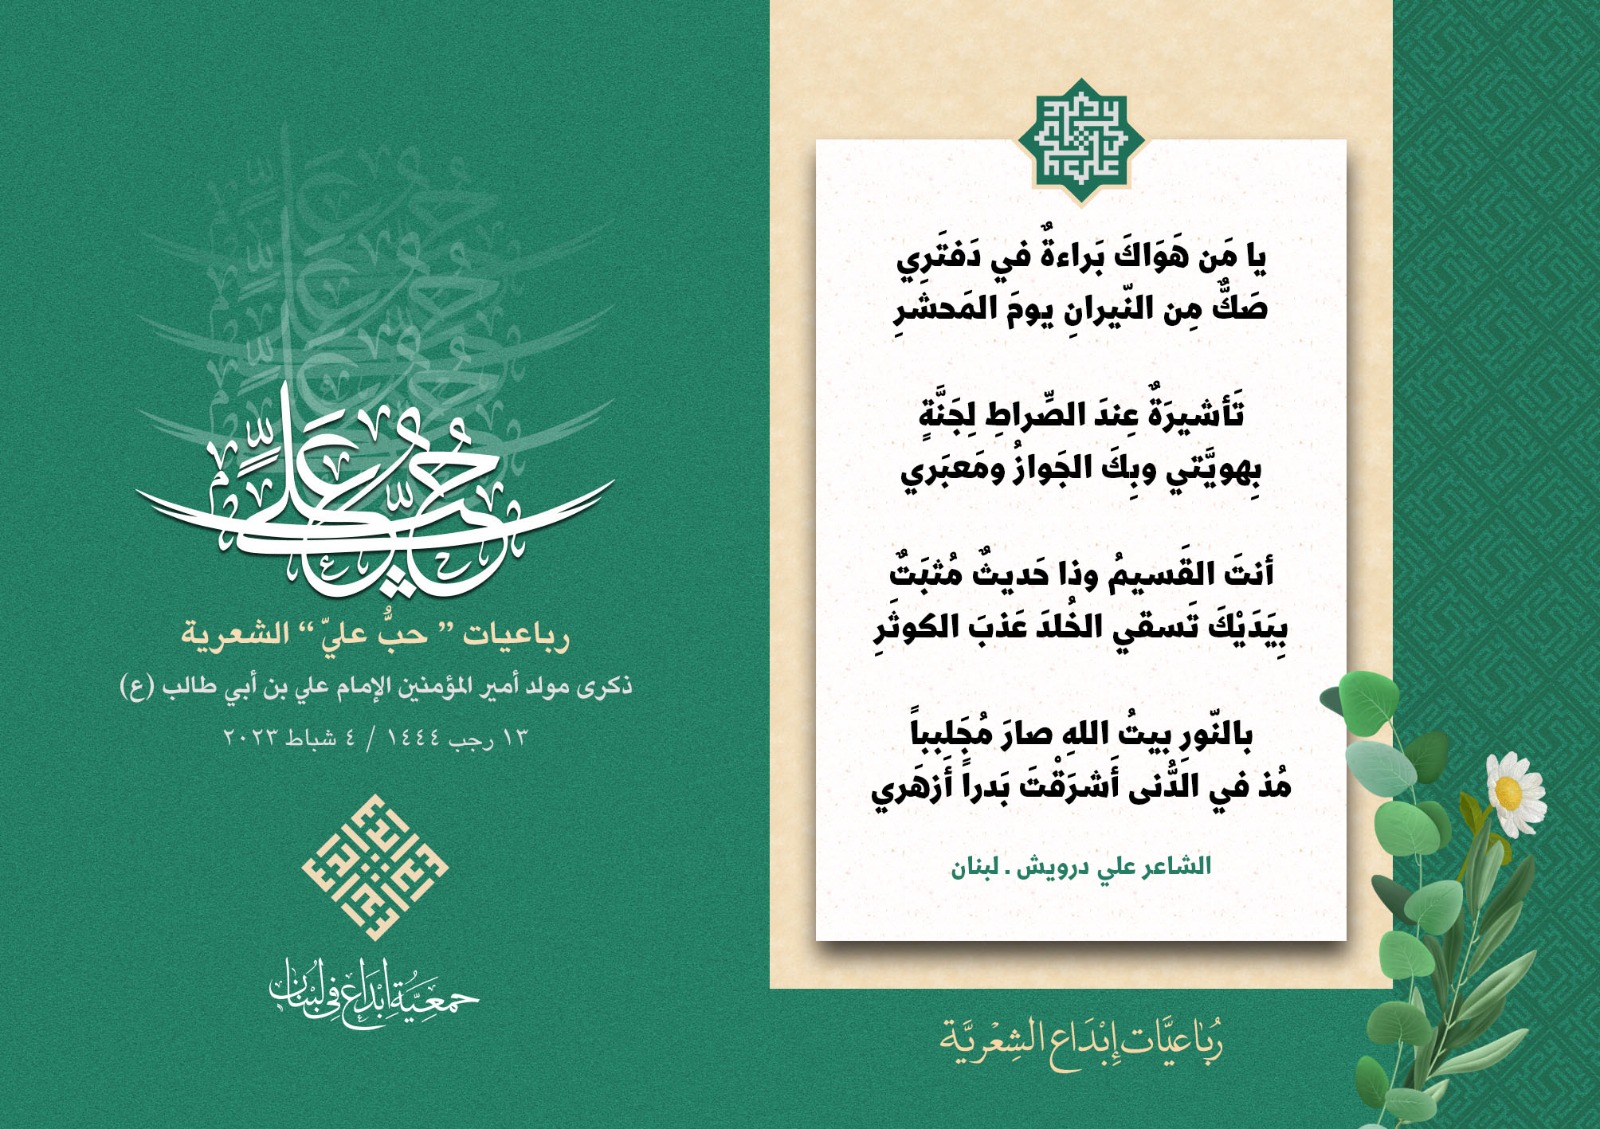 يا مَن هَوَاكَ بَراءةٌ في دَفتَرِي
صَكٌّ مِن النّيرانِ يومَ المَحشرِ
تَأشيرَةٌ عِندَ الصِّراطِ لِجَنَّةٍ
بِهويَّتي وبِكَ الجَوازُ ومَعبَري
أنتَ القَسيمُ وذا حَديثٌ مُثبَتٌ
بِيَدَيْكَ تَسقي الخُلدَ عَذبَ الكوثَرِ
بالنّورِ بيتُ اللهِ صارَ مُجَلبِباً
مُذ في الدُّنى أَشرَقْتَ بَدراً أَزهَري
الشاعر علي درويش . لبنان
رُبَاعيَّات إِبْدَاع الشِعْريَّة
حُبُّ عَلِيٍّ
رباعيات ” حبُّ عليّ “ الشعرية
ذكرى مولد أمير المؤمنين الإمام علي بن أبي طالب (ع)
١٣ رجب ١٤٤٤ / ٤ شباط ٢٠٢٣
جمعيّة إبداع في لبنان